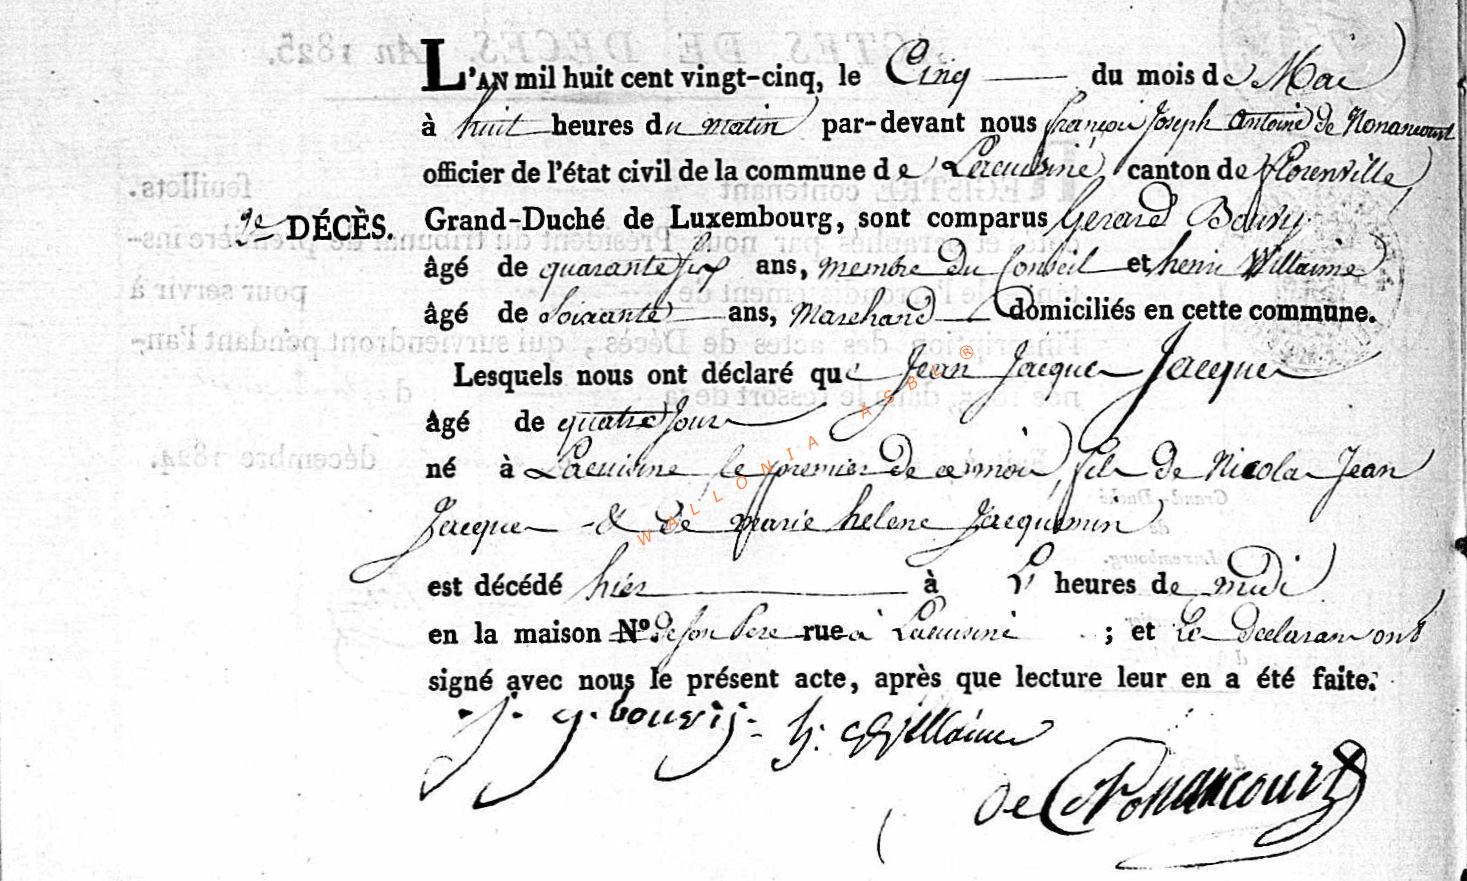 L'AN mil huit cent vingt-cinq, le Cinq du mois de Mai
à huit heures du matin par-devant nous françois Joseph Antoine de Nonancourt
officier de l'état civil de la commune de Lacuisine canton de florenville
Grand-Duché de Luxembourg, sont comparus Gerard
2e DÉCÈS.
âgé de quarante six ans, membre du Conseil et henri Willaime
âgé de Soixante ans, Marchand domiciliés en cette commune.
Lesquels nous ont déclaré que Jean Jacques Jacques
âgé de quatre Jours
né à Lacuisine le premier de ce mois, fils de Nicolas Jean
Jacques & de marie helene Jacquemin
est décédé hier à heures de midi
en la maison N° de son Pere rue à Lacuisine ; et Les Declarans ont
signé avec nous le présent acte, après que lecture leur en a été faite.
de Nonancourt
WALLONIA ASBL ®